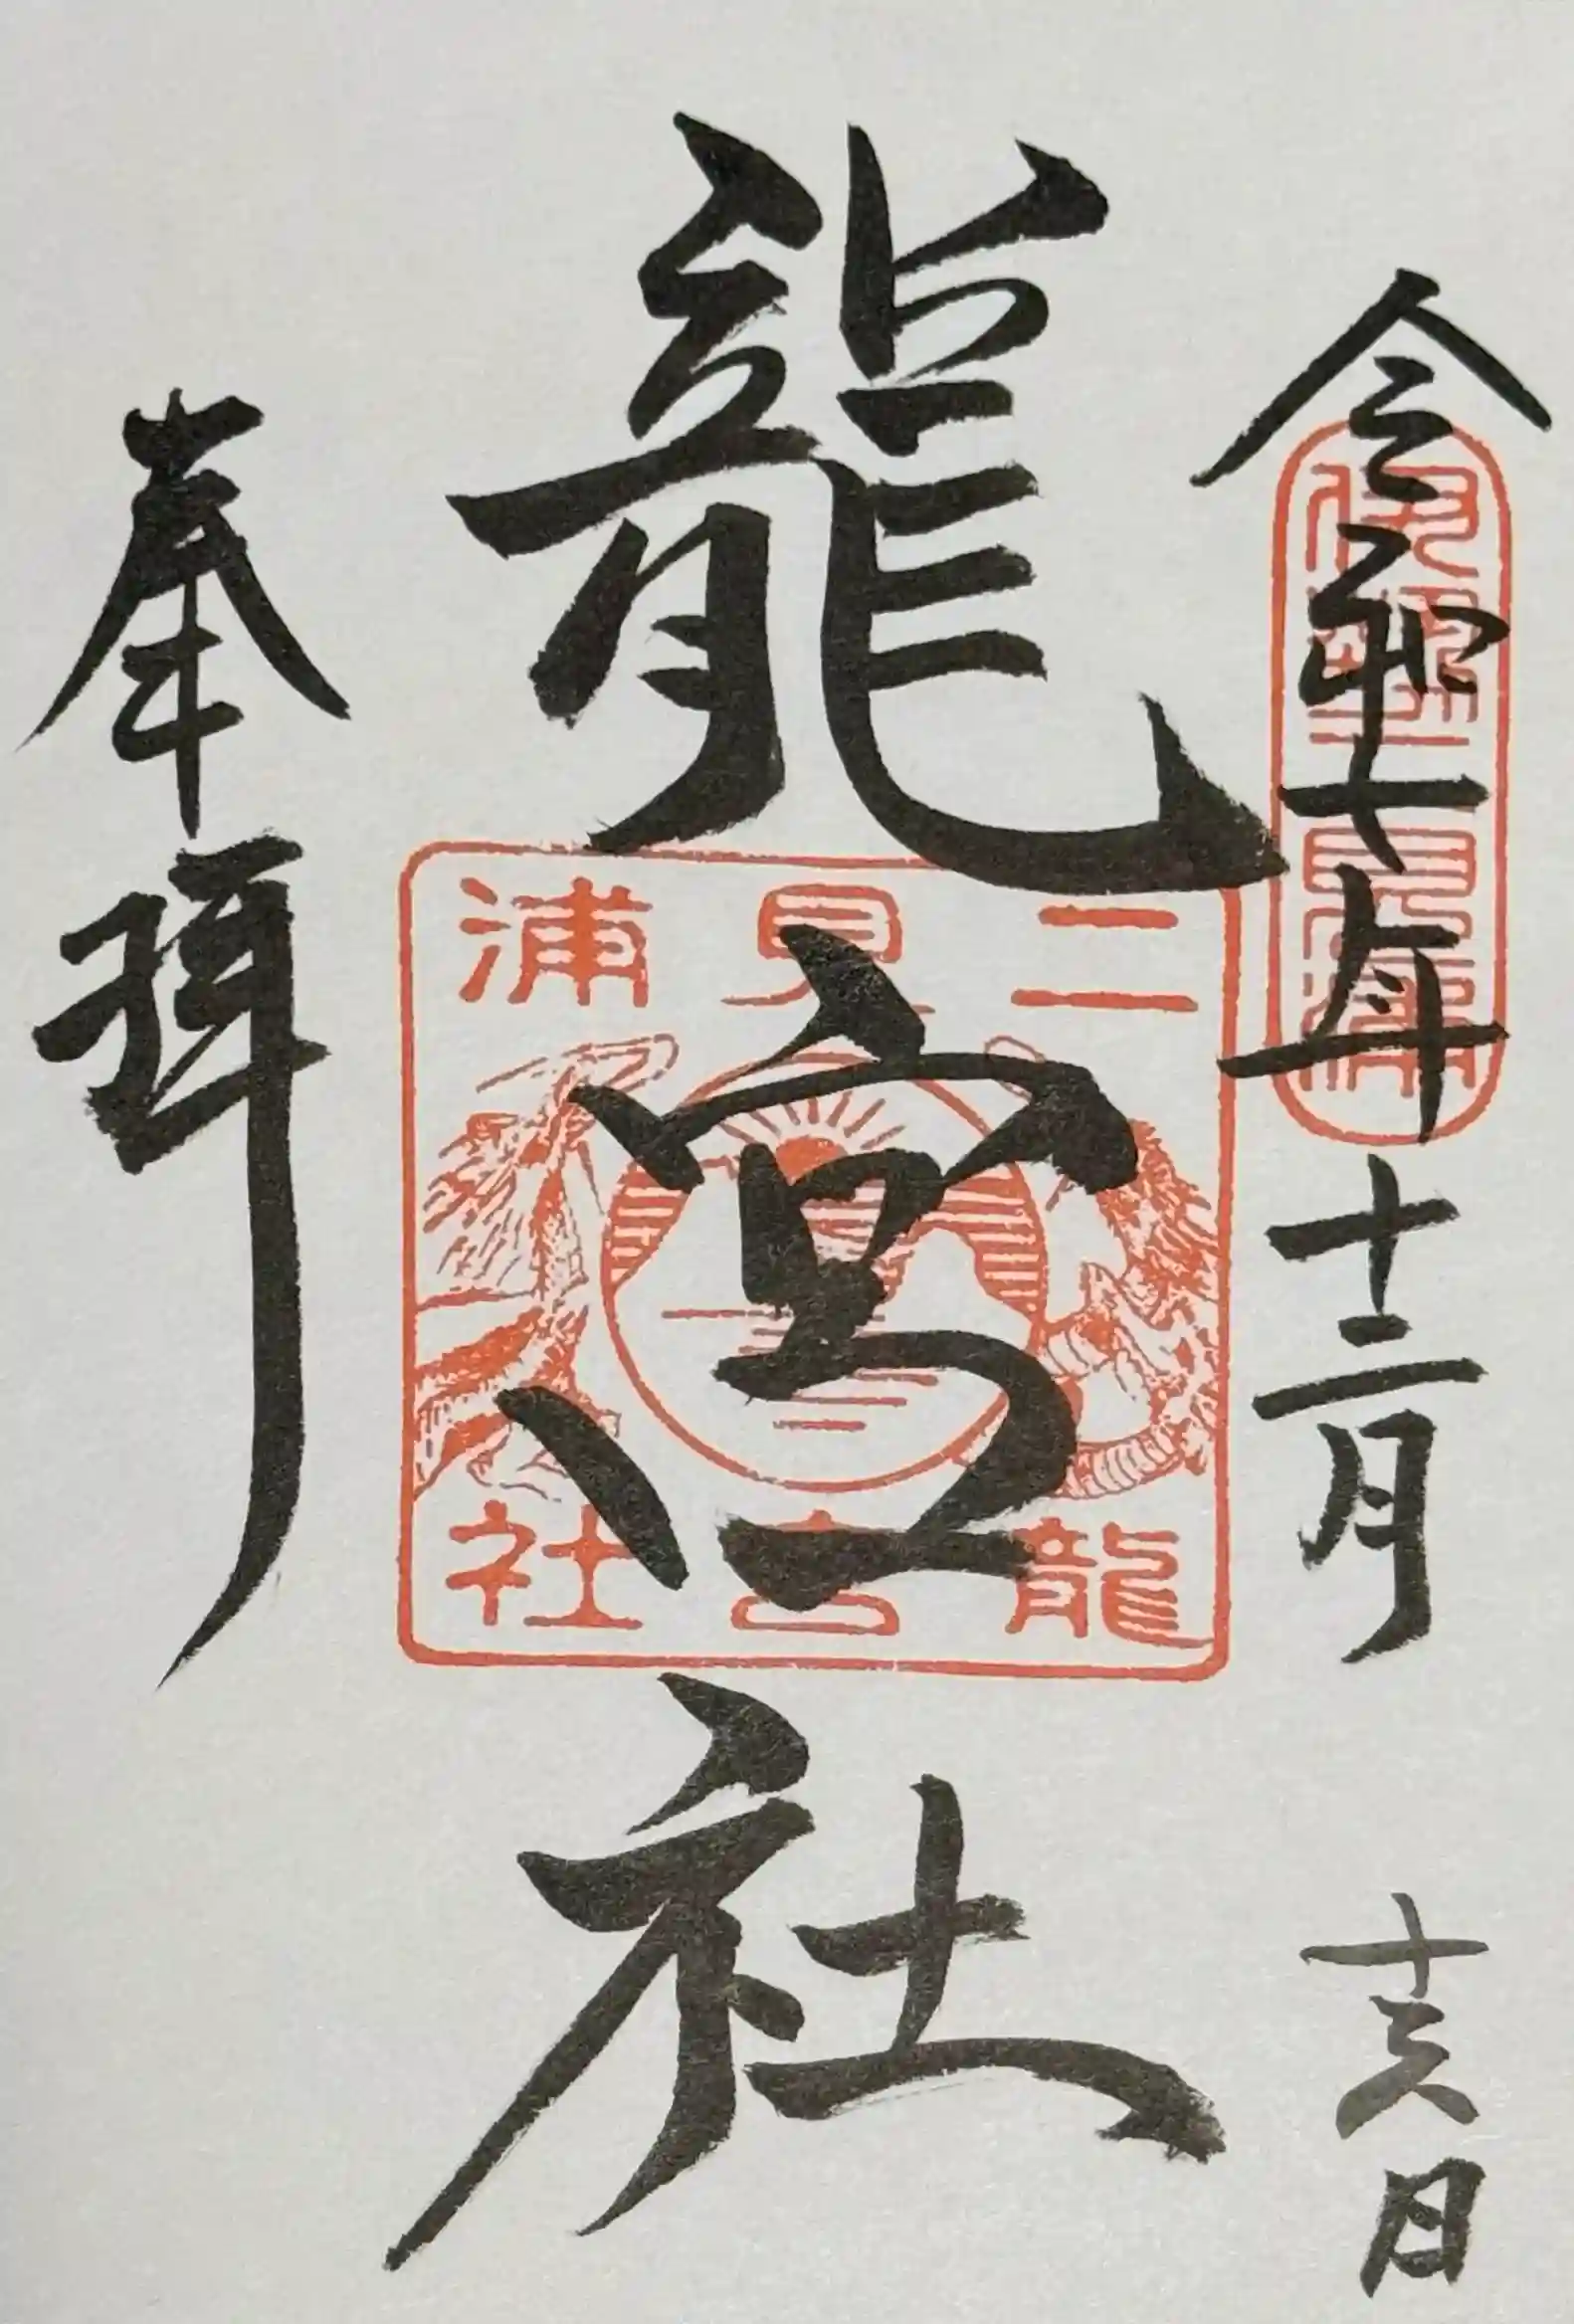 令和七年十二月十六日
龍宮社
奉拝
伊勢二見浦
二見浦
龍宮社